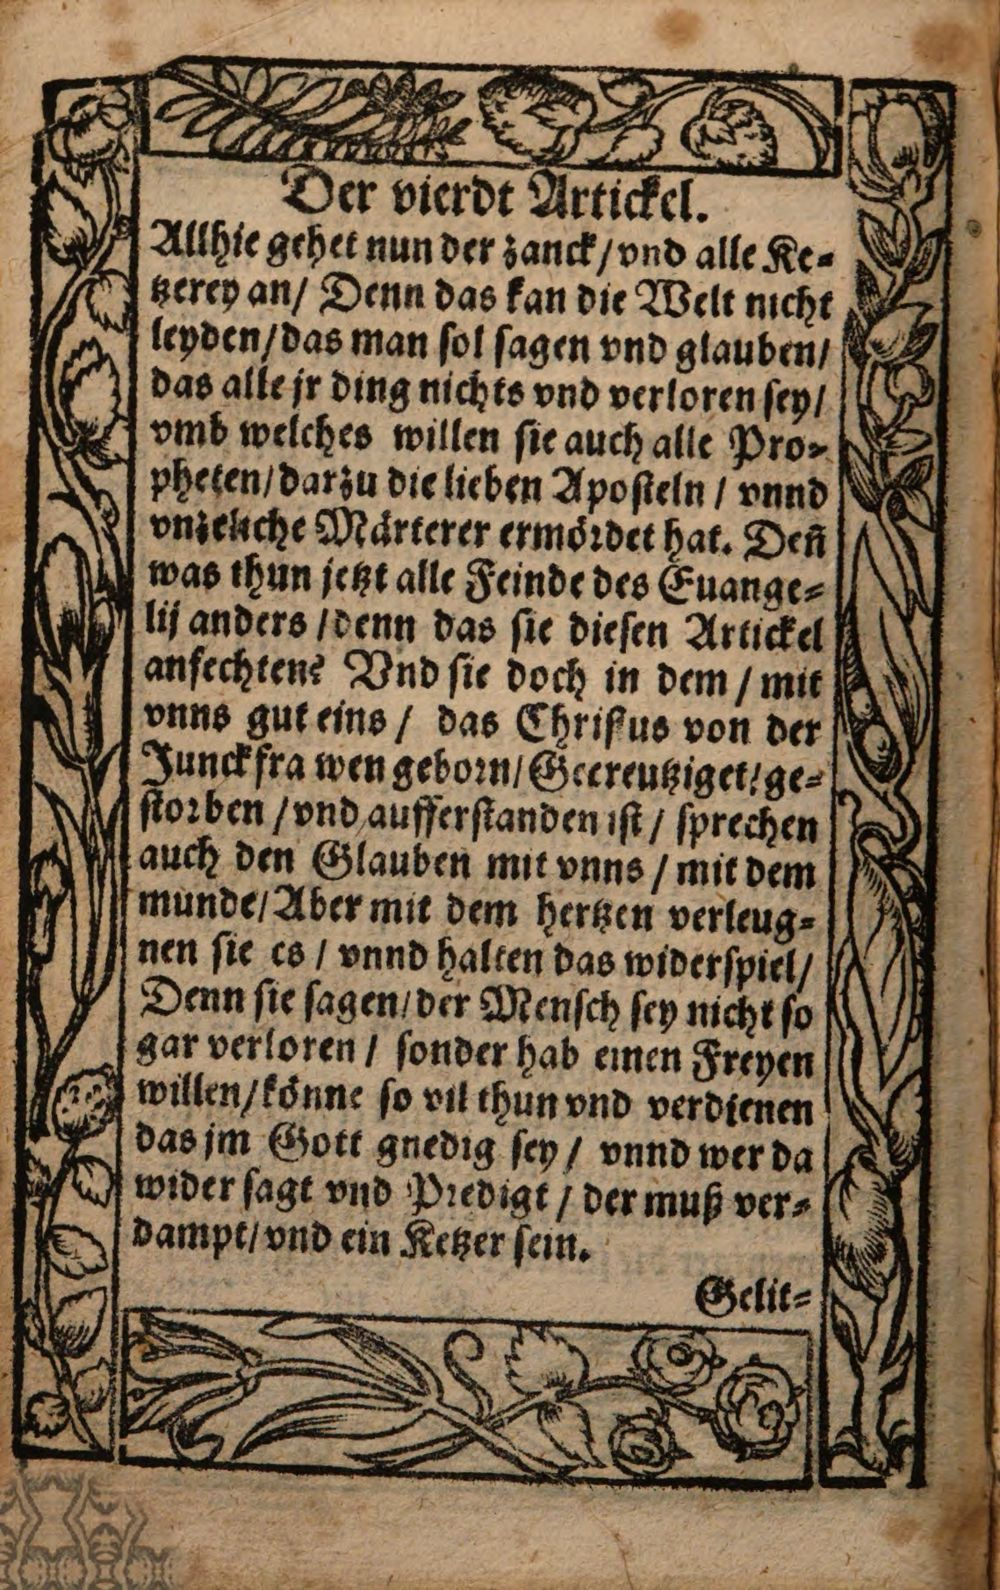 Der vierdt Artickel.
Allhie gehet nun der zanck/vnd alle Ke-
tzerey an/ Denn das kan die Welt nicht
leyden/das man sol sagen vnd glauben/
das alle jr ding nichts vnd verloren sey/
vmb welches willen sie auch alle Pro-
pheten/darzu die lieben Aposteln / vnnd
vnzeliche Märterer ermördet hat. Deñ
was thun jetzt alle Feinde des Euange-
lij anders /denn das sie diesen Artickel
anfechten? Vnd sie doch in dem / mit
vnns gut eins / das Christus von der
Junckfrawen geborn/Gecreutziget/ge-
storben /vnd aufferstanden ist / sprechen
auch den Glauben mit vnns / mit dem
munde/Aber mit dem hertzen verleug-
nen sie es / vnnd halten das widerspiel/
Denn sie sagen/der Mensch sey nicht so
gar verloren / sonder hab einen Freyen
willen/könne so vil thun vnd verdienen
das jm Gott gnedig sey / vnnd wer da
wider sagt vnd Predigt / der muß ver-
dampt/vnd ein Ketzer sein.
Gelit-